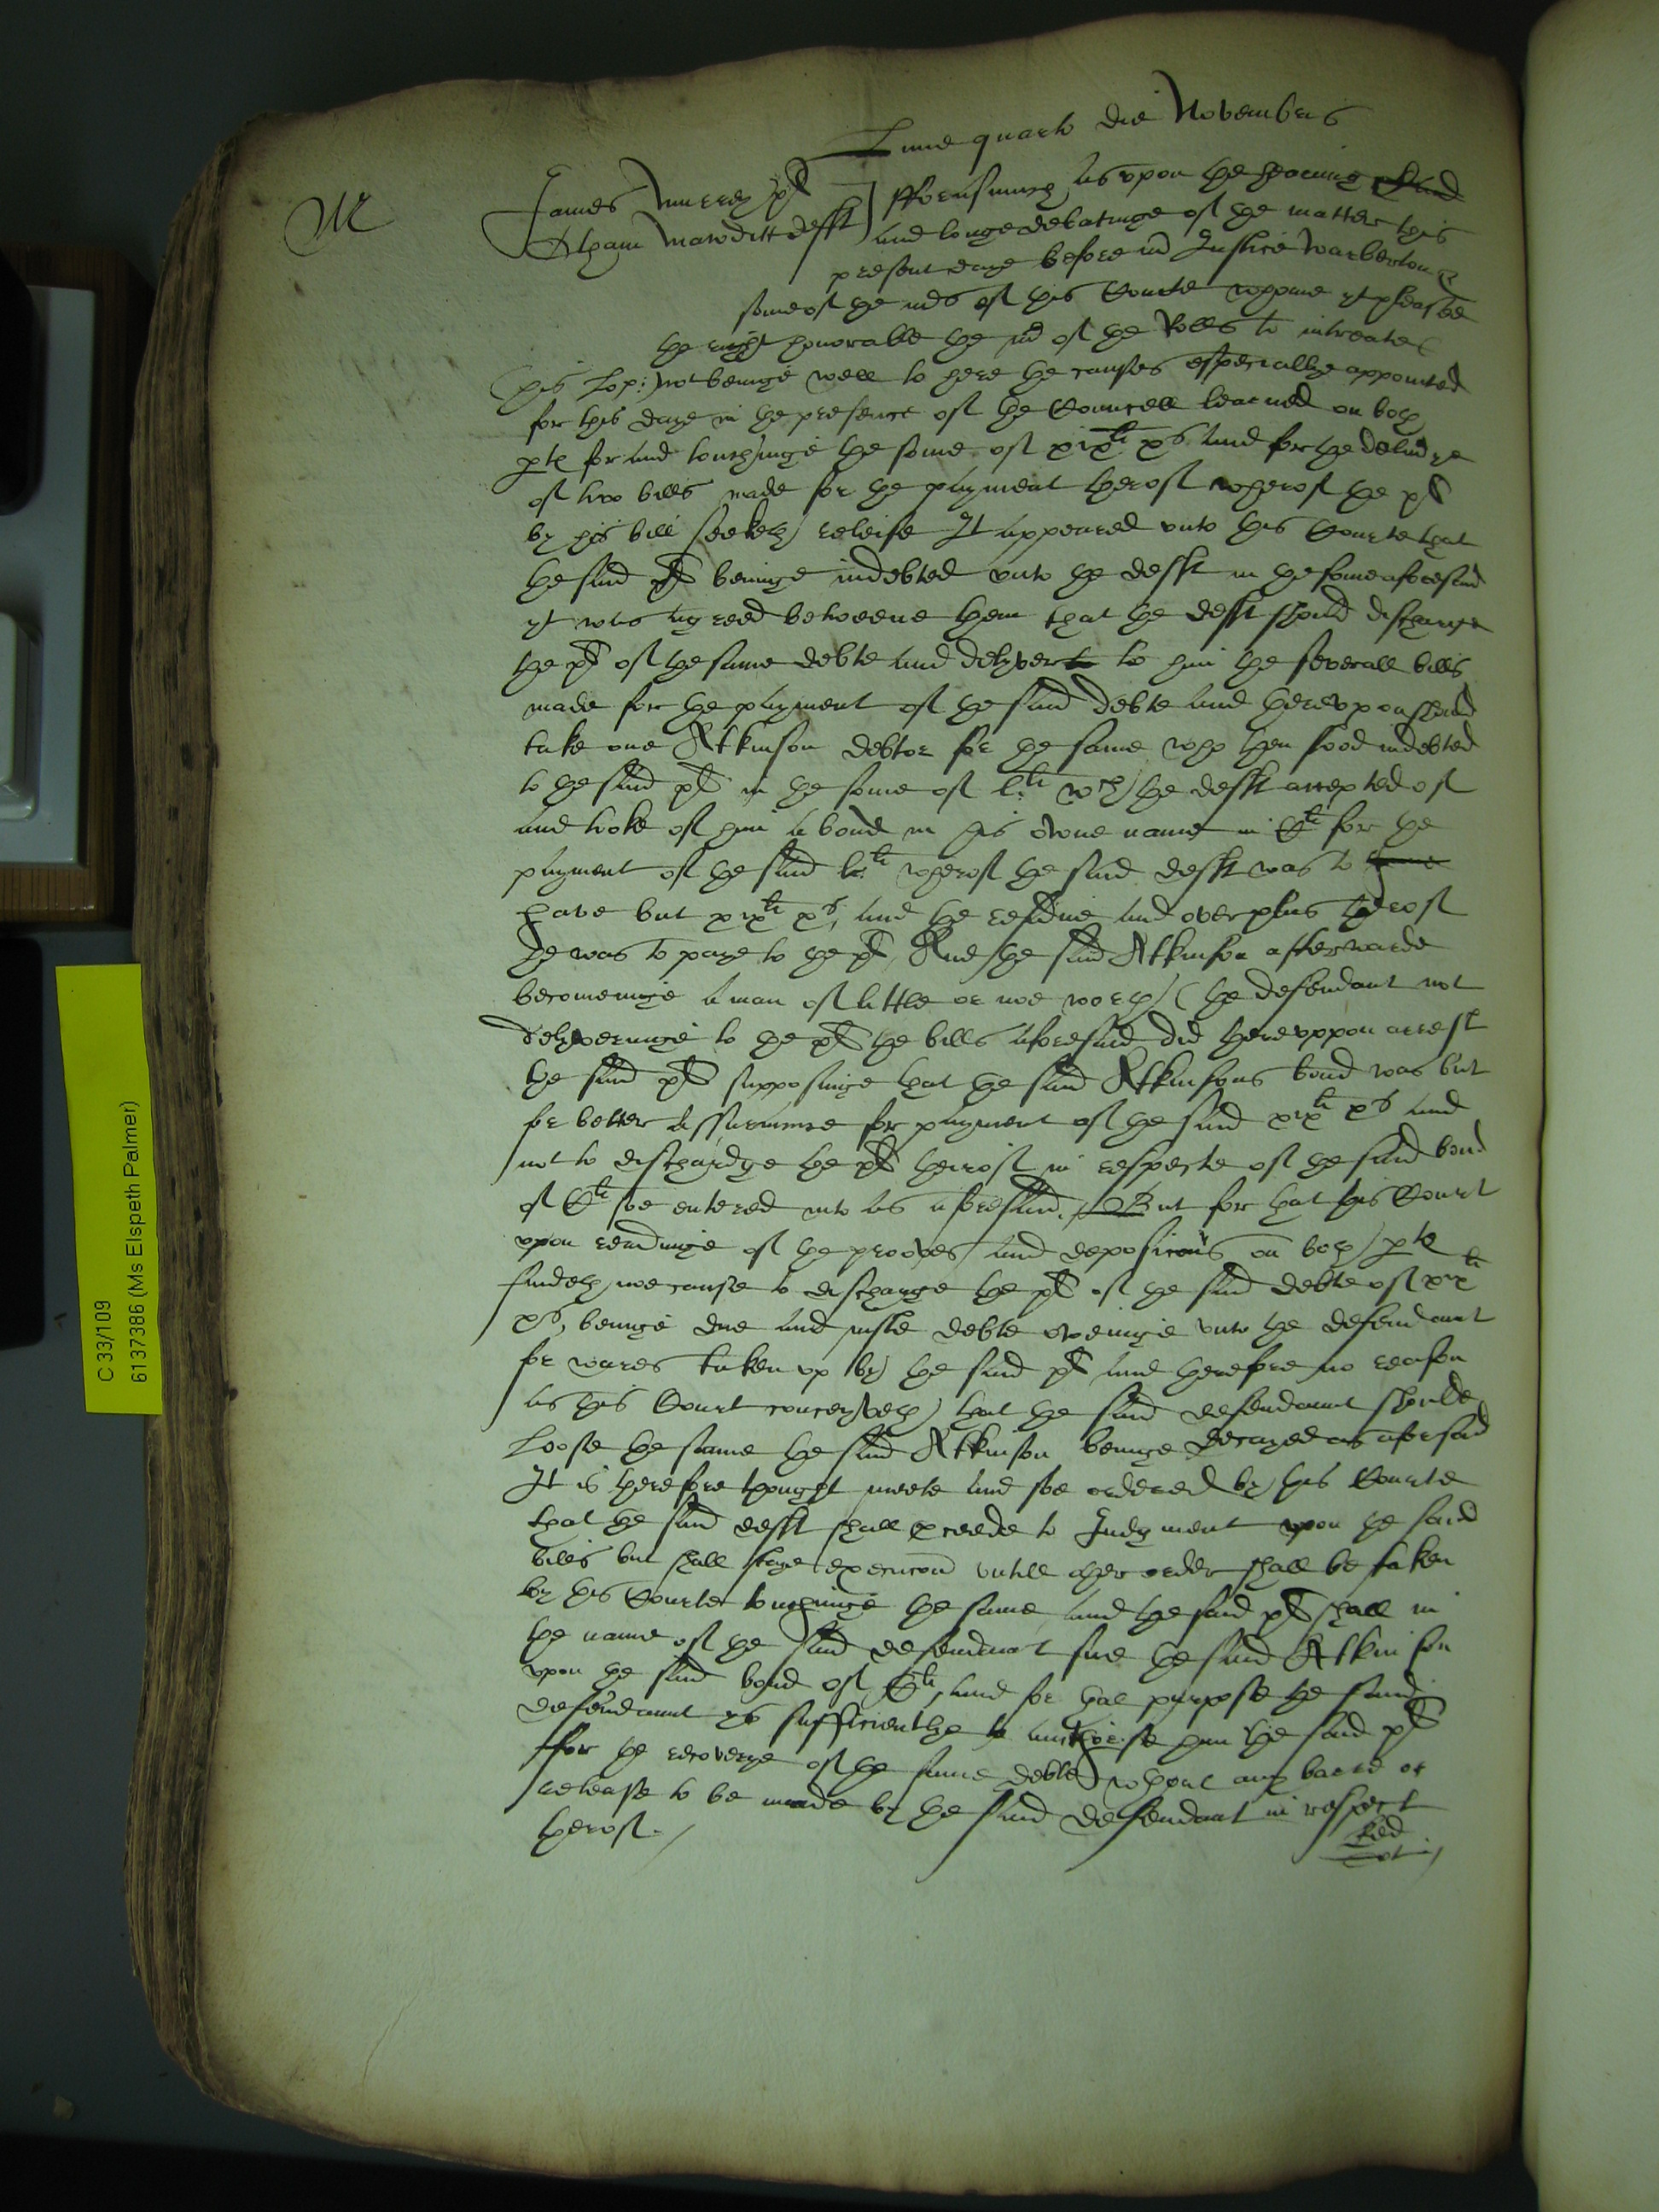 Lune quarto die Novembris
M
James Murrey pl
Mawditt defft
Fforasmuch as upon the hearing
and longe debatinge of the matter this
present daye before mr Justice Warberton &
some of the mrs of this Courte whome yt pleased
the right honorable the mr of the Rolles to intreate
(his Lop: not beinge well to here the causes especiallye appointed
for this daye in the presence of the Councell learned on both
ptes for and touchinge the some of xixli xs and for the delivrye
of two bills made for the payment therof wherof the pl
by his bill seeketh releife It appeared unto this Courte that
the said pl beinge indebted unto the defft in the some aforesaid
yt was agreed betweene them that the defft should discharge
the pl of the same debte and delyver to him the severall bills
made for the payment of the said debte and therevpon should
take one Atkinson debtor for the same who then stood indebted
to the said pl in the some of lli wch the defft accepted of
and tooke of him a bond in his owne name in Cli for the
payment of the said lli wherof the said defft was to
have but xixli xs, and the residue and overplus therof
he was to paye to the pl, And the said Atkinson afterwarde
becomeinge a man of little or noe worth (the defendant not
delyveringe to the pl the bills aforesaid did therevppon arrest
the said pl supposinge that the said Atkinsons bond was but
for better assuraunce for payment of the said xixli xs and
not to dischardge the pl therof in respecte of the said bond
of Cli soe entered into as aforesaid. / But for that this Court
vpon readinge of the prooves and deposicons on both pte
findeth noe cause to discharge the pl of the said debte of xixli
xs, beinge due and juste debte oweinge unto the defendant
for wares taken vp by the said pl and therefore no reason
as this Court conceyveth that the said defendaunt shoulde
Loose the same the said Atkinson beinge decayed as aforsaid
It is therefore thought meete and soe ordered by this Courte
that the said defft shall pceede to Judgment vpon the said
bills but shall staye execucon vntill other order shall be taken
by this Courte touchinge the same, and the said pl shall in
the name of the said defendant sue the said Atkinson
vpon the said bond of Cli, and for that purpose the said
defendaunt ys sufficientlye to authorise him the said pl
for the recoverye of the same debte without any barre or
release to be made by the said defendant in respect
therof. /
C 33/109
6137386 (Ms Elspeth Palmer)